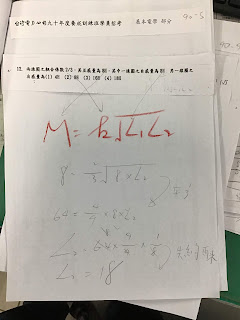 台灣電力公司九十年度養成訓練班學員招考 基本電學 部分
90-3
12. 兩線圈之耦合係數2/3,其互感量為8H,其中一線圈之自感量為8H 另一線圈之
自感量為(1) 4H (2) 8H (3) 16H (4) 18H
M = k√L₁L₂
8 = 2/3 √8×L₂
64 = 4/9 × 8×L₂
L₂ = 64 × 9/4 × 1/8
L₂ = 18